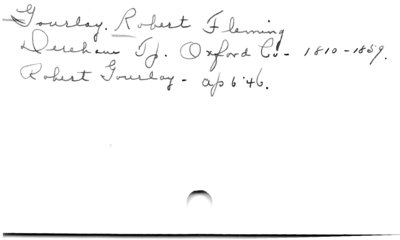 Gourlay. Robert Fleming
Dereham Tp. Oxford Co - 1810-1859.
Robert Gourlay - ap 6 '46.